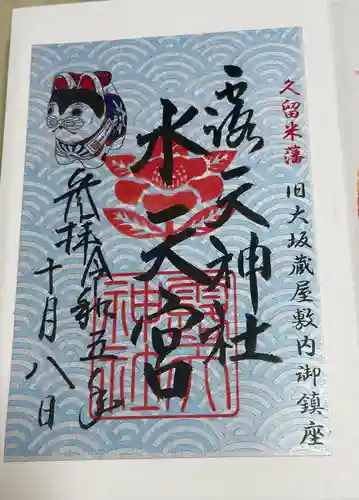 久留米藩
旧大坂蔵屋敷内御鎮座
露天神社
水天宮
参拝令和五年
十月八日